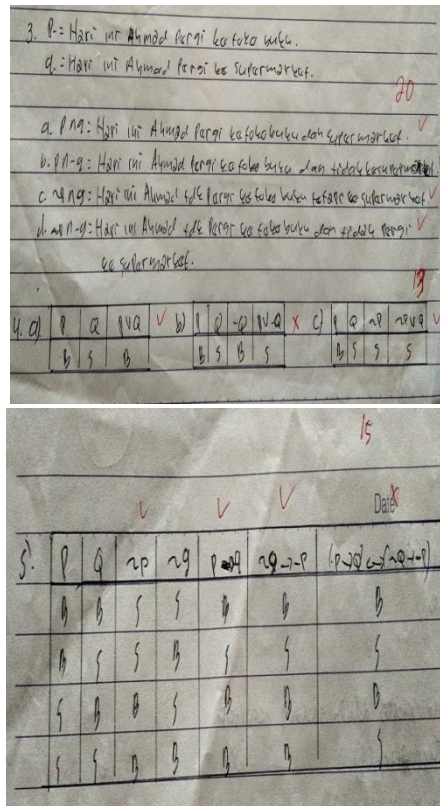 3. P = Hari ini Ahmad Pergi ke toko buku.
q. = Hari ini Ahmad Pergi ke Supermarket.
20
a. p ∩ q = Hari ini Ahmad Pergi ke toko buku dan supermarket. ✓
b. p ∩ -q = Hari ini Ahmad Pergi ke toko buku dan tidak ke supermarket.
c. ~p ∩ q = Hari ini Ahmad tdk Pergi ke toko buku tetapi ke supermarket ✓
d. ~p ∩ -q = Hari ini Ahmad tdk Pergi ke toko buku dan tidak Pergi ✓
ke supermarket.
13
4. a) P Q P∨Q ✓ b) P Q -Q P∨-Q × c) P Q ~P ~P∨Q ✓
B S B B S B S B S S S
15
✓ ✓ ✓ Date ×
5. P Q ~P ~q P→q ~Q→-P (P→Q)↔(~Q→-P)
B B S S B B B
B S S B S S S
S B B S B B B
S S B B B B S